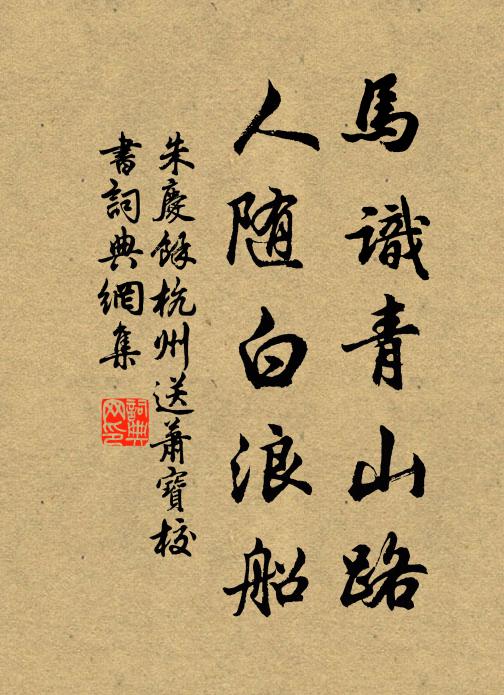 馬識青山路
人随白浪船
朱慶餘杭州送蕭寶校
書詞典網集
詞典
网印